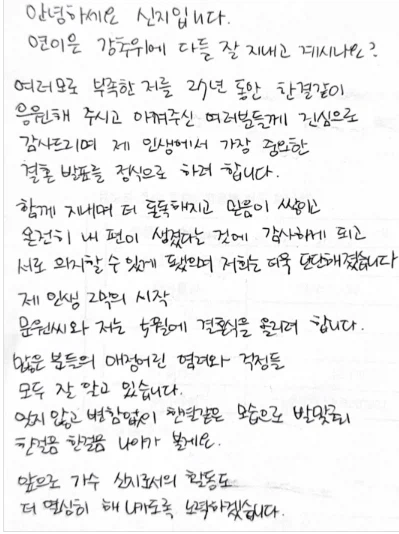 안녕하세요 신지입니다.
연이은 강추위에 다들 잘 지내고 계시나요?
여러모로 부족한 저를 27년 동안 한결같이
응원해 주시고 아껴주신 여러분들께 진심으로
감사드리며 제 인생에서 가장 중요한
결혼 발표를 정식으로 하려 합니다.
함께 지내며 더 돈독해지고 믿음이 쌓이고
온전히 내 편이 생겼다는 것에 감사하게 되고
서로 의지할 수 있게 됐으며 저희는 더욱 단단해졌습니다
제 인생 2막의 시작
문원씨와 저는 5월에 결혼식을 올리려 합니다.
많은 분들의 애정어린 격려와 걱정들
모두 잘 알고 있습니다.
잊지 않고 변함없이 한결같은 모습으로 발맞춰
한걸음 한걸음 나아가 볼게요.
앞으로 가수 신지로서의 활동도
더 열심히 해 나가도록 노력하겠습니다.